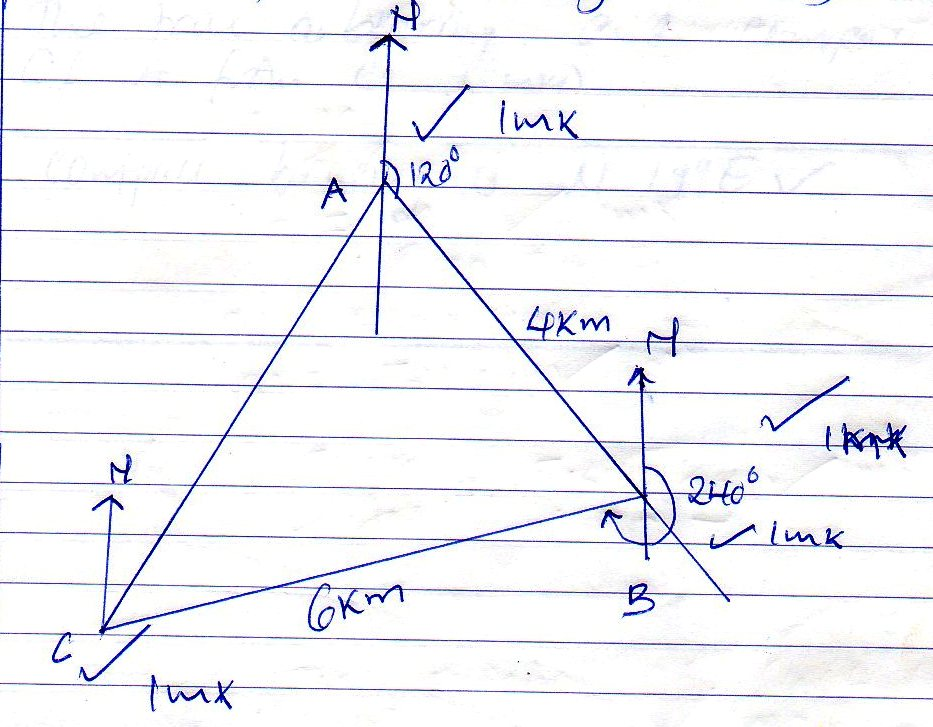 N
1mk
A 120°
4Km
N
1
N
240°
1mk
6Km
B
C
1mk